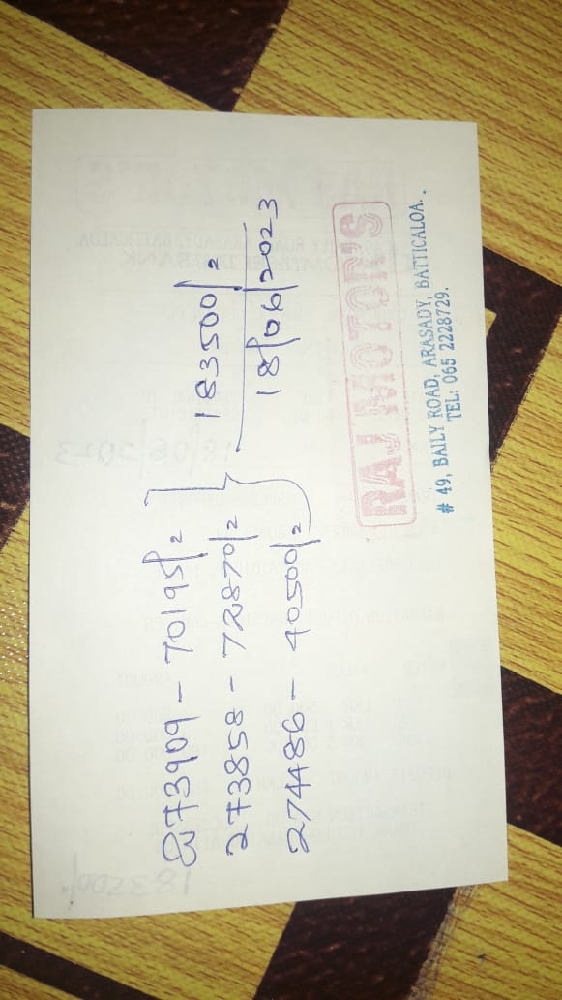 273909 - 70195/2
273858 - 72870/2
274486 - 40500/2
183500/2
18/06/2023
RAJ MOTOR'S
# 49, BAILY ROAD, ARASADY, BATTICALOA.
TEL: 065 2228729.